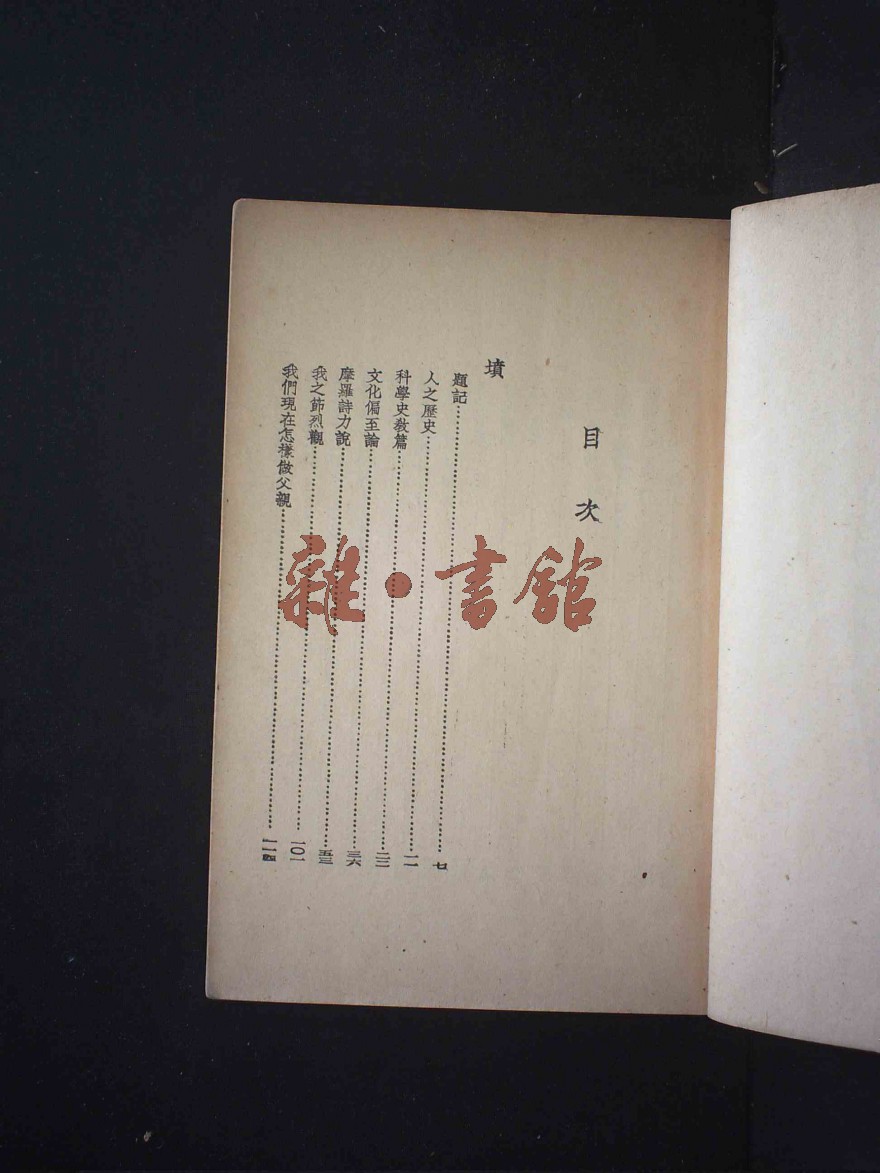 目次
墳
題記…………七
人之歷史…………一一
科學史教篇…………二二
文化偏至論…………三六
摩羅詩力說…………五三
我之節烈觀…………一〇一
我們現在怎樣做父親…………一一四
雜·書館